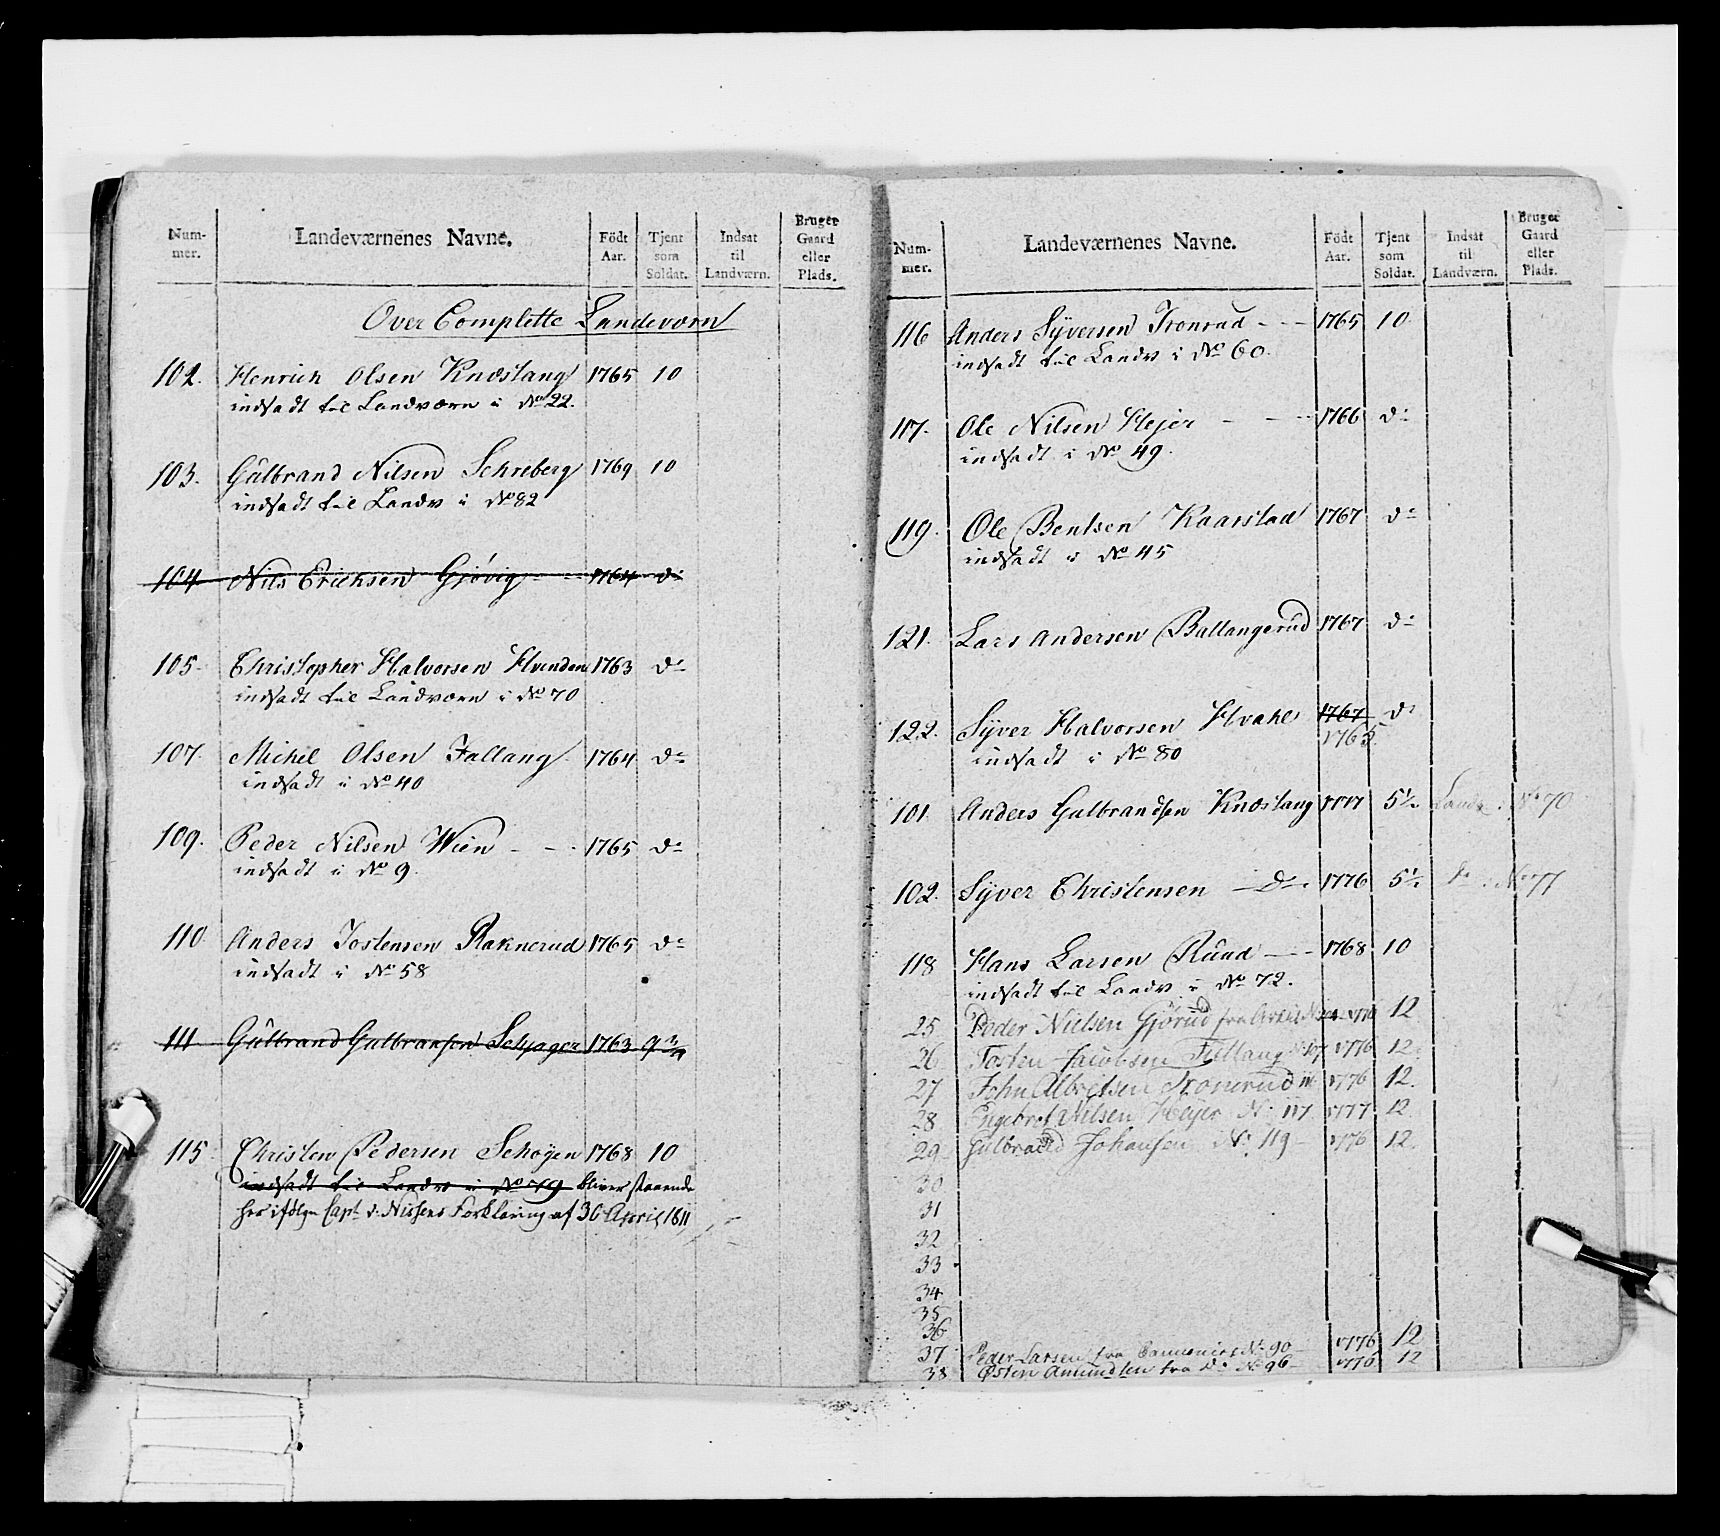 Num-
mer.
Landeværnenes Navne.
Födt
Aar.
Tjent
som
Soldat.
Indsat
til
Landværn.
Bruger
Gaard
eller
Plads.
Over Complette Landeværn
102. Henrich Olsen Knæstang 1765 10
indsadt til Landværn i No 22.
103. Gulbrand Nilsen Schreberg 1769 10
indsadt til Landv i No 82
104 Nils Erichsen Gjövig 1764 do
105. Christopher Halvorsen Hvinden 1763 do
indsadt til Landværn i No 70
107. Michel Olsen Fallang 1764 do
indsadt i No 40
109. Peder Nilsen Wien 1765 do
indsadt i No 9.
110 Anders Jostensen Raknerud 1765 do
indsadt i No 58
111 Gulbrand Gulbransen Schjager 1763 9 3/4
115. Christen Pedersen Schoyen 1768 10
indsadt til Landv i No 79 bliver staaende
her ifølge Capt v. Nissens Forklaring af 30 April 1811
Num-
mer.
Landeværnenes Navne.
Födt
Aar.
Tjent
som
Soldat.
Indsat
til
Landværn.
Bruger
Gaard
eller
Plads.
116 Anders Syversen Tronrud 1765 10
indsadt til Landv i No 60.
117. Ole Nilsen Hejer 1766 do
indsadt i No 49.
119. Ole Bentsen Kaarstad 1767 do
indsadt i No 45
121. Lars Andersen Ballangerud 1767 do
122. Syver Halvorsen Hvahl 1767 do
1763.
indsadt i No 80
101. Anders Gulbrandsen Knæstang 1777 5 1/2 Landv. No 70
102. Syver Christensen do 1776 5 1/2 do No 77
118 Hans Larsen Ruud 1768 10
indsadt til Landv i No 72.
25 Peder Nielsen Gjörud fra 1776 12
26 Tosten Jacobsen Fallang No 107 1776 12
27 John Albretsen Tronerud 1776 12.
28 Engebret Nilsen Hejer No 117 1777 12
29 Gulbrand Johansen No 119 1776 12
30
31
32
33
34
35
36
37 Peder Larsen fra No 90 1776 12
38 Østen Amundsen fra do No 96 1776 12